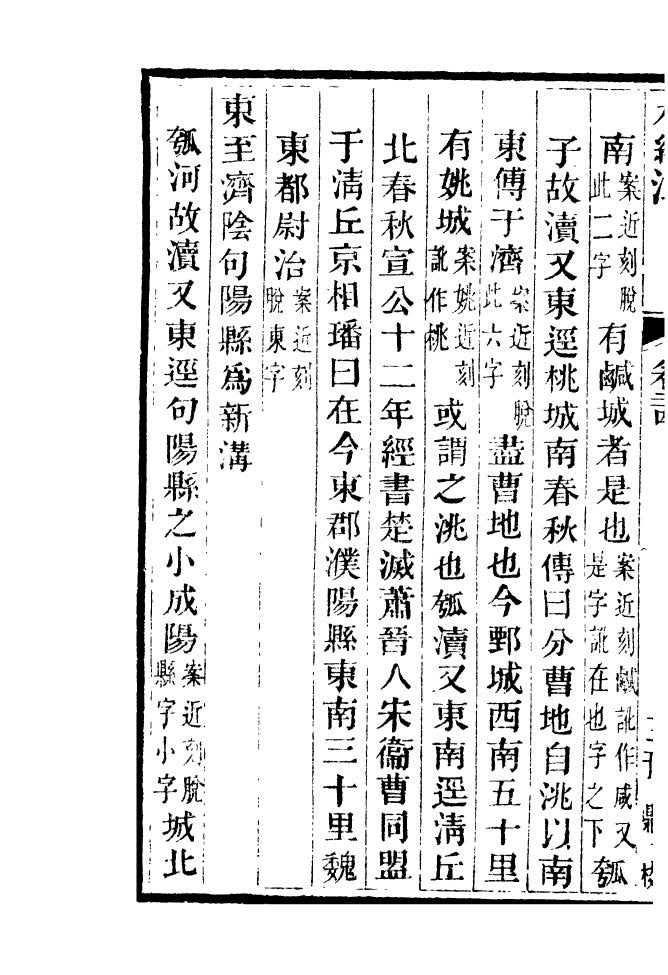 水經注 卷二
南案近刻脫此二字有鹹城者是也案近刻鹹訛作咸又是字訛在也字之下瓠
子故瀆又東逕桃城南春秋傳曰分曹地自洮以南
東傅于濟案近刻脫此六字盡曹地也今鄄城西南五十里
有姚城案姚近刻訛作桃或謂之洮也瓠瀆又東南逕淸丘
北春秋宣公十二年經書楚滅蕭晉人宋衞曹同盟
于淸丘京相璠曰在今東郡濮陽縣東南三十里魏
東都尉治案近刻脫東字
東至濟陰句陽縣爲新溝
瓠河故瀆又東逕句陽縣之小成陽案近刻脫縣字小字城北